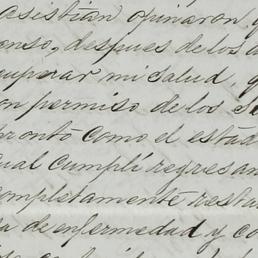 asistian opinaron q
enso, despues de los a
cuperar mi salud, q
on permiso de los Se
pronto como el estad
cual cumplí regresan
completamente resta
a de enfermedad y co